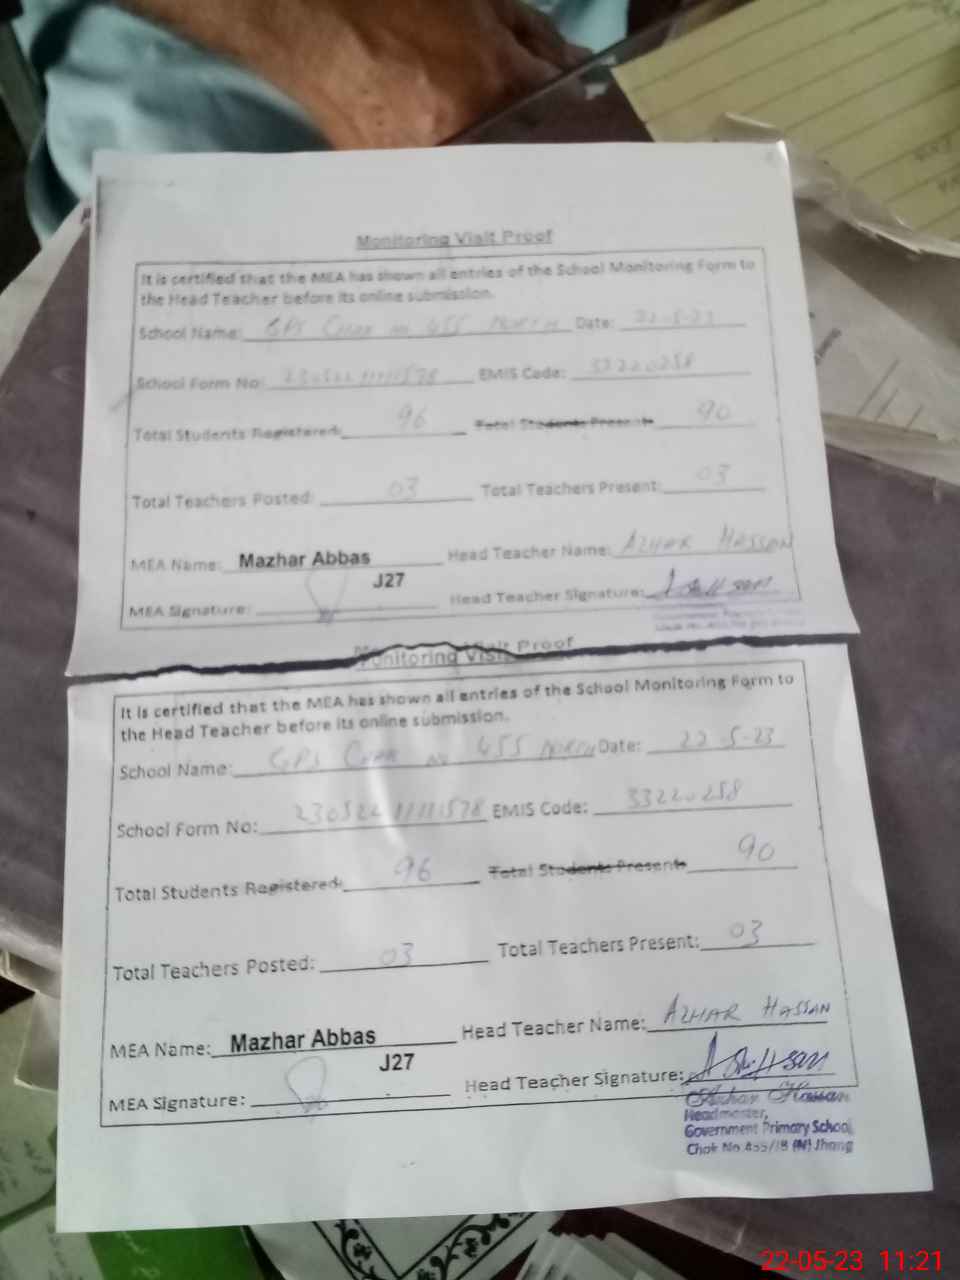 Monitoring Visit Proof
It is certified that the MEA has shown all entries of the School Monitoring Form to
the Head Teacher before its online submission.
School Name: GPS Chak no 455 North Date: 22-5-23
School Form No: 23052211111578 EMIS Code: 33220258
Total Students Registered: 96 Total Students Present: 90
Total Teachers Posted: 03 Total Teachers Present: 03
MEA Name: Mazhar Abbas Head Teacher Name: AZHAR HASSAN
J27
MEA Signature: Head Teacher Signature:
Monitoring Visit Proof
It is certified that the MEA has shown all entries of the School Monitoring Form to
the Head Teacher before its online submission.
School Name: GPS Chak no 455 North Date: 22-5-23
School Form No: 23052211111578 EMIS Code: 33220258
Total Students Registered: 96 Total Students Present: 90
Total Teachers Posted: 03 Total Teachers Present: 03
MEA Name: Mazhar Abbas Head Teacher Name: AZHAR HASSAN
J27
MEA Signature: Head Teacher Signature:
Azhar Hassan
Headmaster,
Government Primary School,
Chak No 455/JB (N) Jhang
22-05-23 11:21